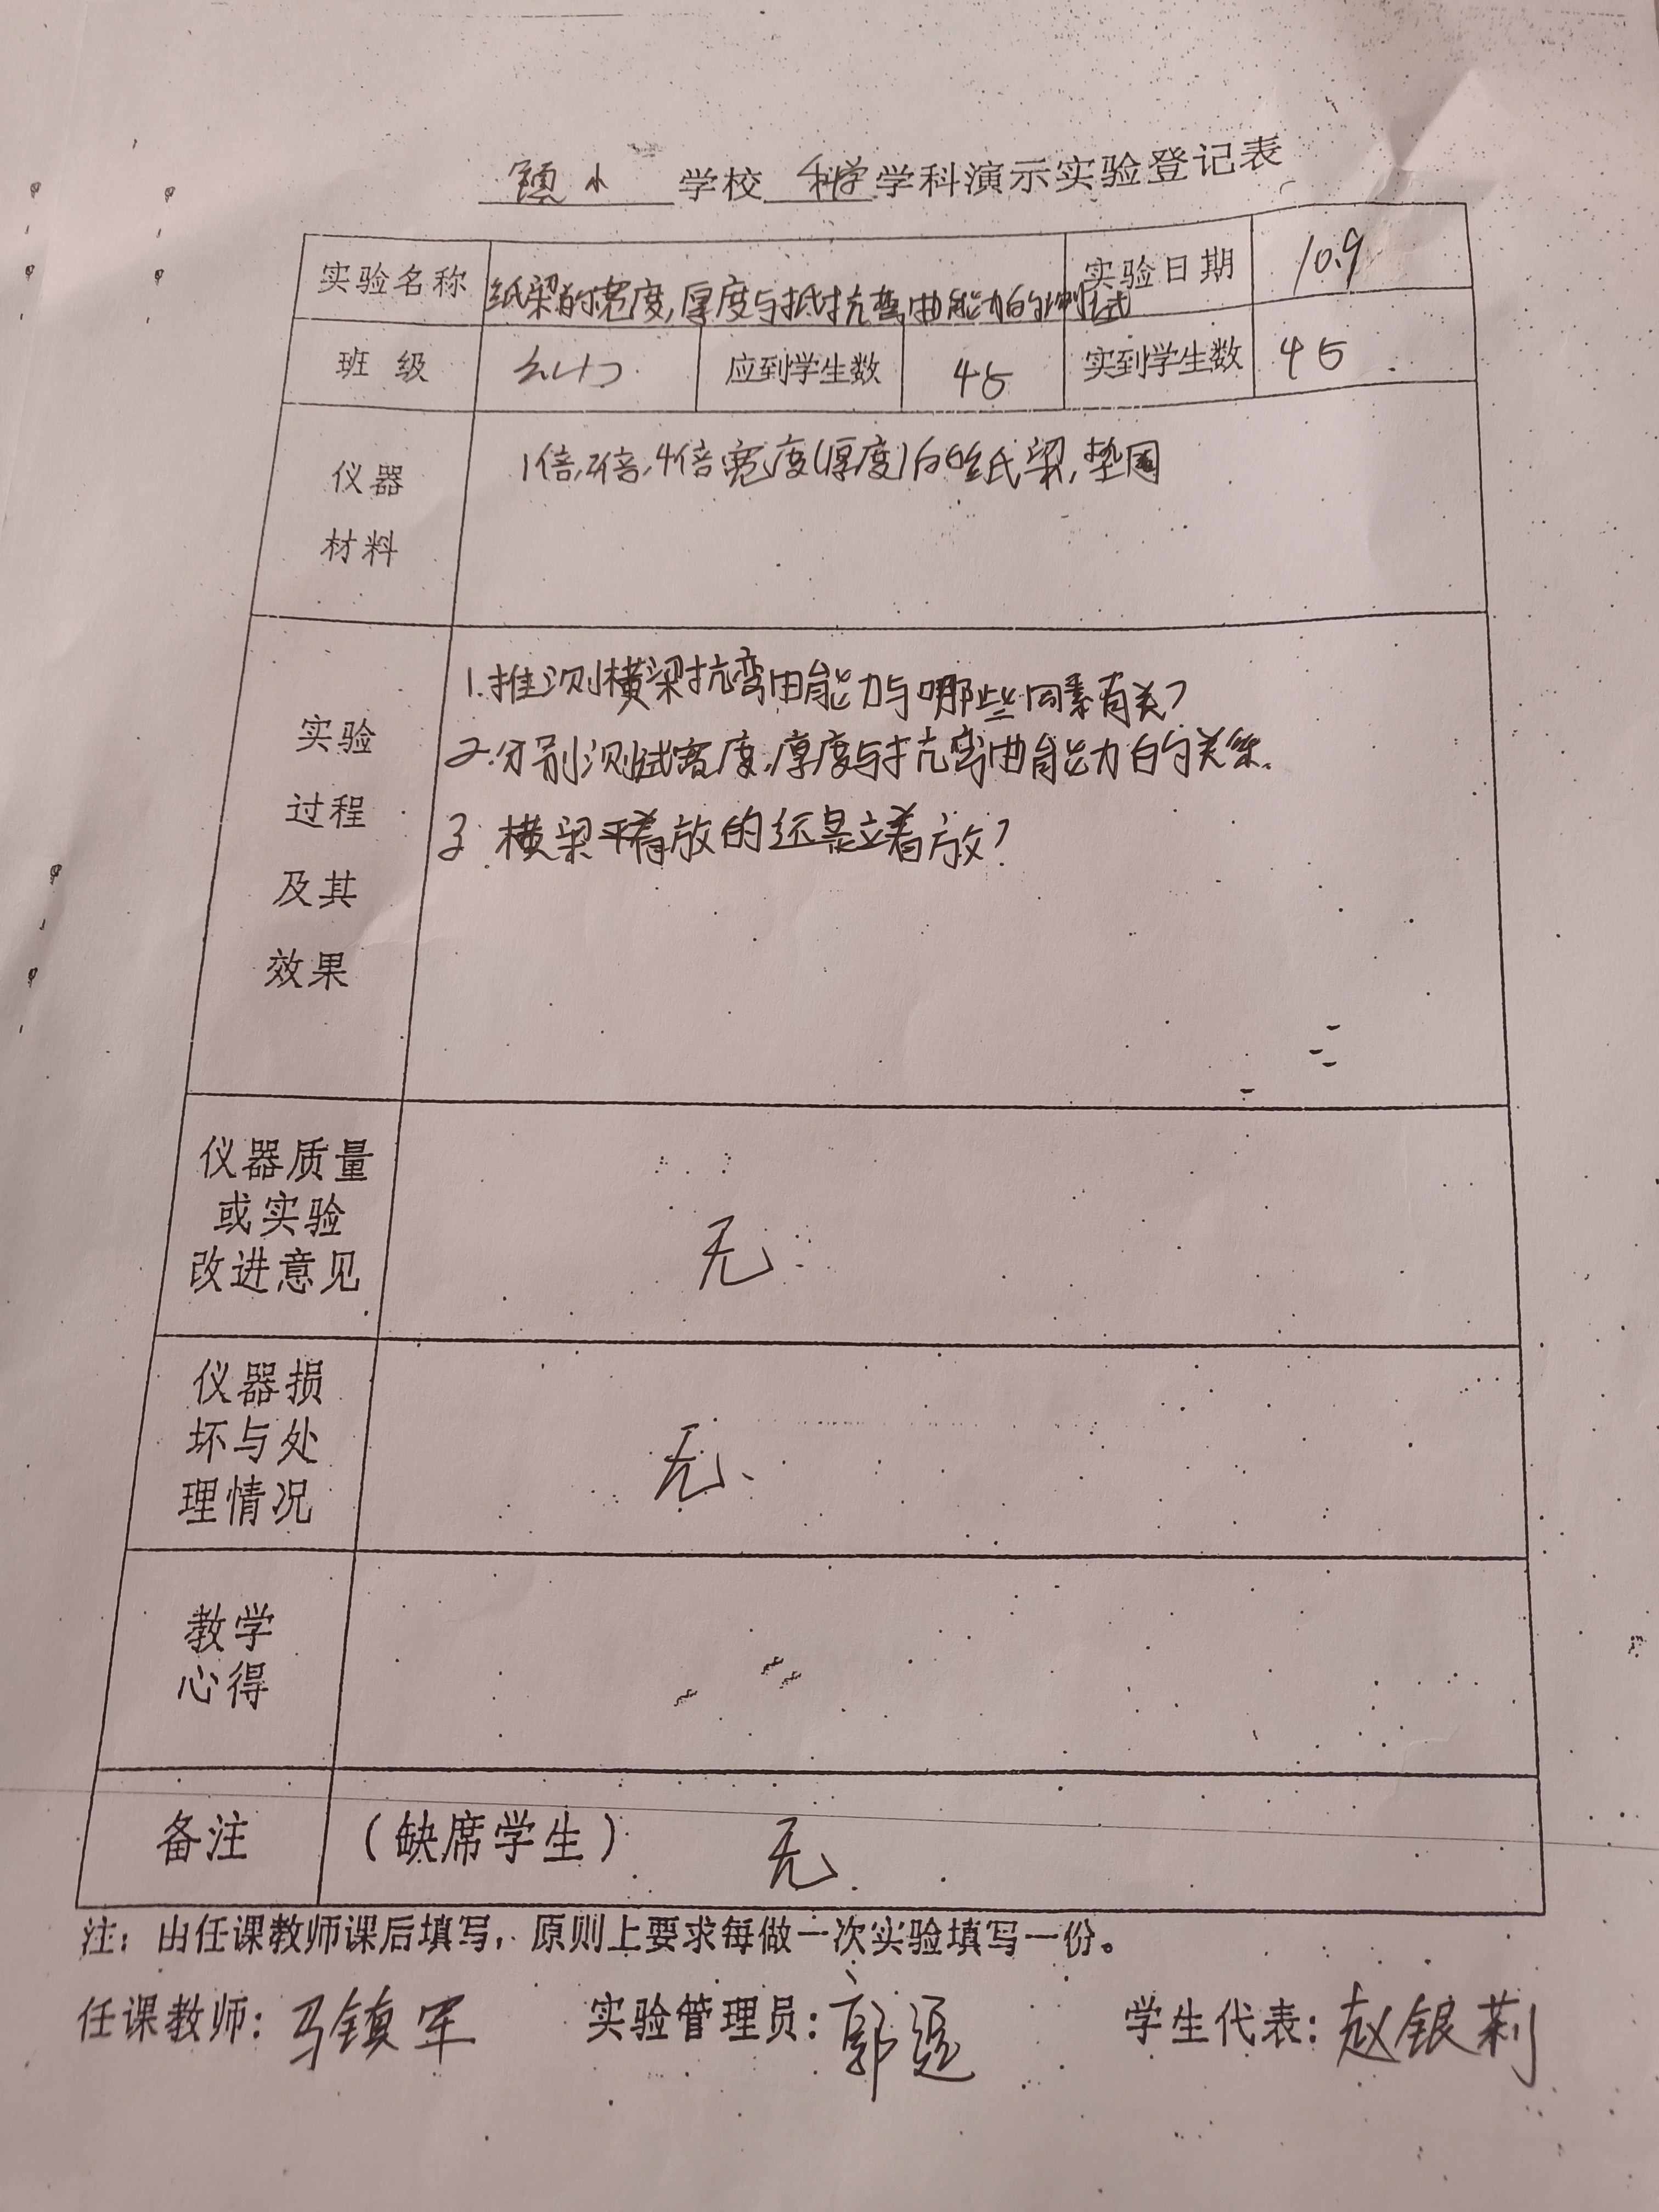 小 学校 科学 学科演示实验登记表
实验名称 纸梁的宽度,厚度与抵抗弯曲能力的测试 实验日期 10.9
班 级 应到学生数 45 实到学生数 45
仪器
材料
1倍,2倍,4倍宽度(厚度)的纸梁,垫圈
实验
过程
及其
效果
1.推测横梁抗弯曲能力与哪些因素有关?
2.分别测试宽度,厚度与抗弯曲能力的关系.
3.横梁平着放的还是立着放?
仪器质量
或实验
改进意见
无
仪器损
坏与处
理情况
无.
教学
心得
备注 (缺席学生) 无.
注: 由任课教师课后填写, 原则上要求每做一次实验填写一份。
任课教师: 马镇军 实验管理员: 郭 学生代表: 赵银莉